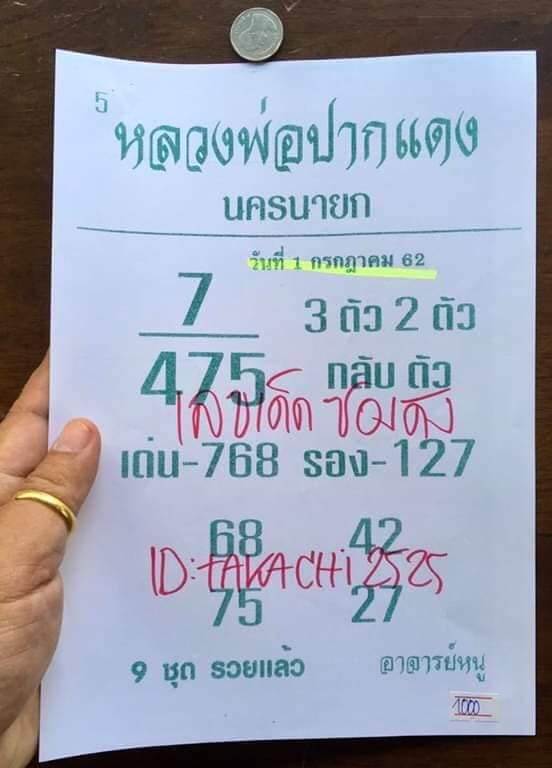 5
หลวงพ่อปากแดง
นครนายก
วันที่ 1 กรกฎาคม 62
7
475
3 ตัว 2 ตัว
กลับ ตัว
เลขเด็ด ซองดัง
เด่น-768 รอง-127
68 42
ID:tAKACHi 2525
75 27
9 ชุด รวยแล้ว
อาจารย์หนู
1000